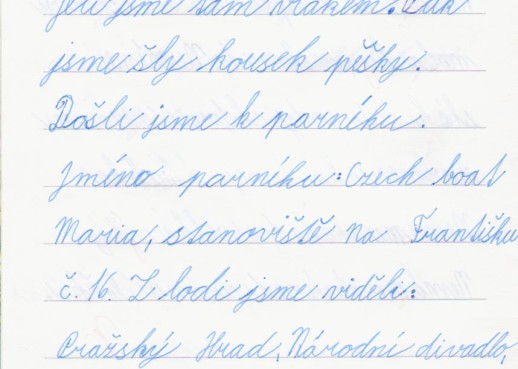 jeli jsme sam vlakem. Pak
jsme šly kousek pěšky.
Došli jsme k parníku.
Jméno parníku: Czech boat
Maria, stanoviště na Františku
č. 16. Z lodi jsme viděli:
Pražský Hrad, Národní divadlo,